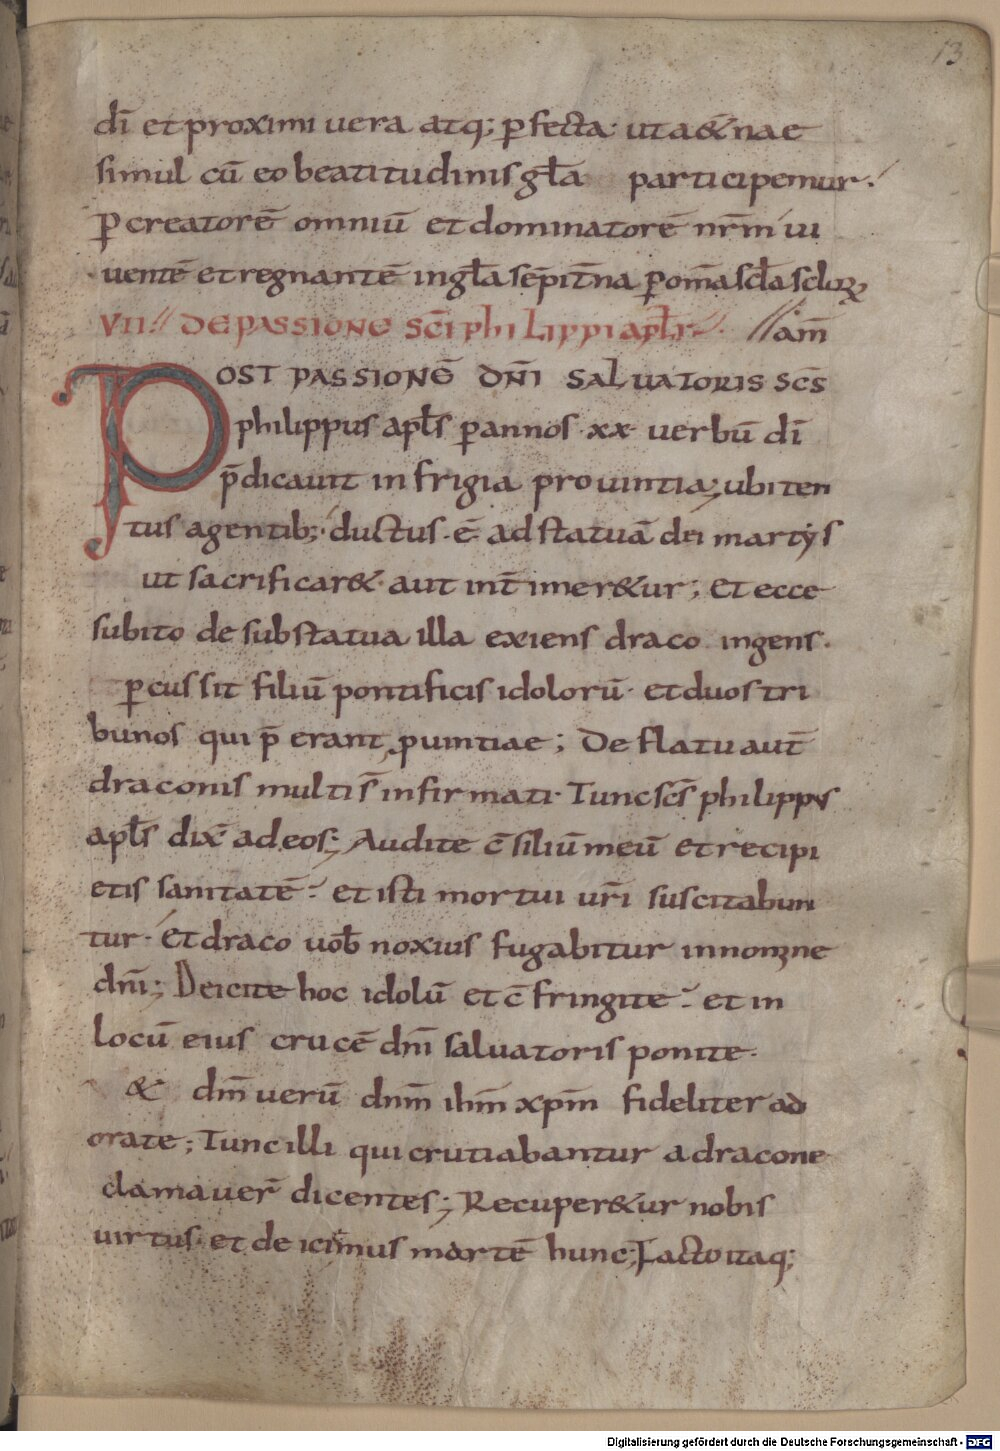 13
dī et proximi uera atq; ꝑfecta· ut a&ernae
simul cū eo beatitudinis gła participemur·
ꝑ creatorē omniū et dominatorē nr̄m ui
uentē et regnantē in gła sēpit̄na ꝑ om̄a scła scłoꝝ
VII·// DE PASSIONE SC̄I philippi apłi· //am̄
POST PASSIONĒ DN̄I SALUATORIS SC̄S
philippus apłs ꝑ annos ·xx· uerbū dī
p̄dicauit in frigia prouintia; ubi ten
tus a gentib;· ductus ·ē· ad statuā dei martys
ut sacrificar&· aut int̄imer&ur; Et ecce
subito de sub statua illa exiens draco ingens·
ꝑcussit filiū pontificis idolorū· et duos tri
bunos qui p̄erant ꝓuintiae; De flatu aut̄
draconis multi s̄ infirmati· Tunc sc̄s philippus
apłs dix̄ ad eos; Audite c̄siliū meū et recipi
etis sanitatē· et isti mortui ur̄i suscitabun
tur· Et draco uob̄ noxius fugabitur in nomine
dn̄i; Deicite hoc idolū et c̄fringite· et in
locū eius crucē dn̄i saluatoris ponite·
& dm̄ uerū dnm̄ ihm̄ xpm̄ fideliter ad
orate; Tunc illi qui crutiabantur a dracone
clamauer̄ dicentes; Recuper&ur nobis
uirtus· et deicimus martē hunc; Facto itaq;
Digitalisierung gefördert durch die Deutsche Forschungsgemeinschaft - DFG